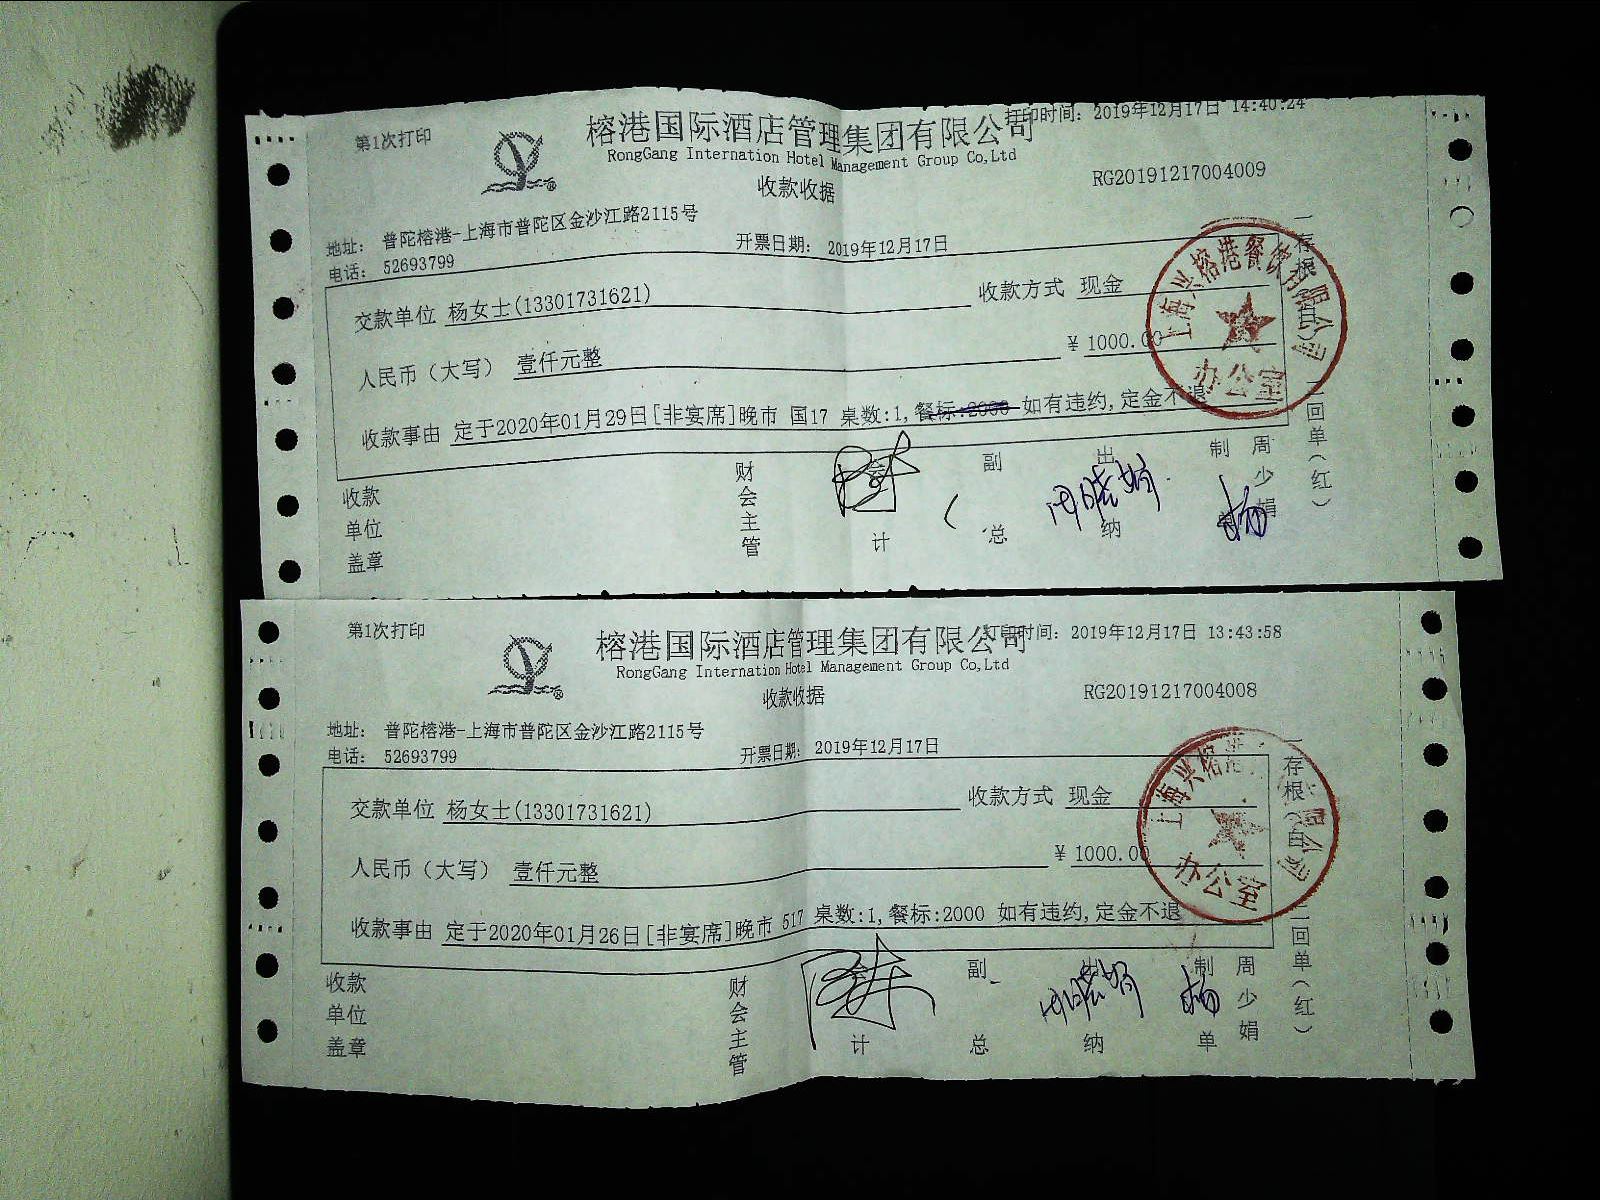 第1次打印
打印时间: 2019年12月17日 14:40:24
榕港国际酒店管理集团有限公司
RongGang Internation Hotel Management Group Co,Ltd
收款收据
RG20191217004009
地址: 普陀榕港-上海市普陀区金沙江路2115号
电话: 52693799
开票日期: 2019年12月17日
交款单位 杨女士(13301731621) 收款方式 现金
人民币（大写） 壹仟元整 ¥ 1000.00
收款事由 定于2020年01月29日[非宴席]晚市 国17 桌数:1,餐标:2000 如有违约,定金不退
收款单位盖章 财会主管 会计 副总 出纳 周晓娇 制 周少娟 杨
二回单(红)
上海兴榕港餐饮有限公司
办公室
第1次打印
打印时间: 2019年12月17日 13:43:58
榕港国际酒店管理集团有限公司
RongGang Internation Hotel Management Group Co,Ltd
收款收据
RG20191217004008
地址: 普陀榕港-上海市普陀区金沙江路2115号
电话: 52693799
开票日期: 2019年12月17日
交款单位 杨女士(13301731621) 收款方式 现金
人民币（大写） 壹仟元整 ¥ 1000.00
收款事由 定于2020年01月26日[非宴席]晚市 517 桌数:1,餐标:2000 如有违约,定金不退
收款单位盖章 财会主管 会计 副总 出纳 周晓娇 制单 周少娟 杨
一存根(白)
二回单(红)
上海兴榕港
办公室